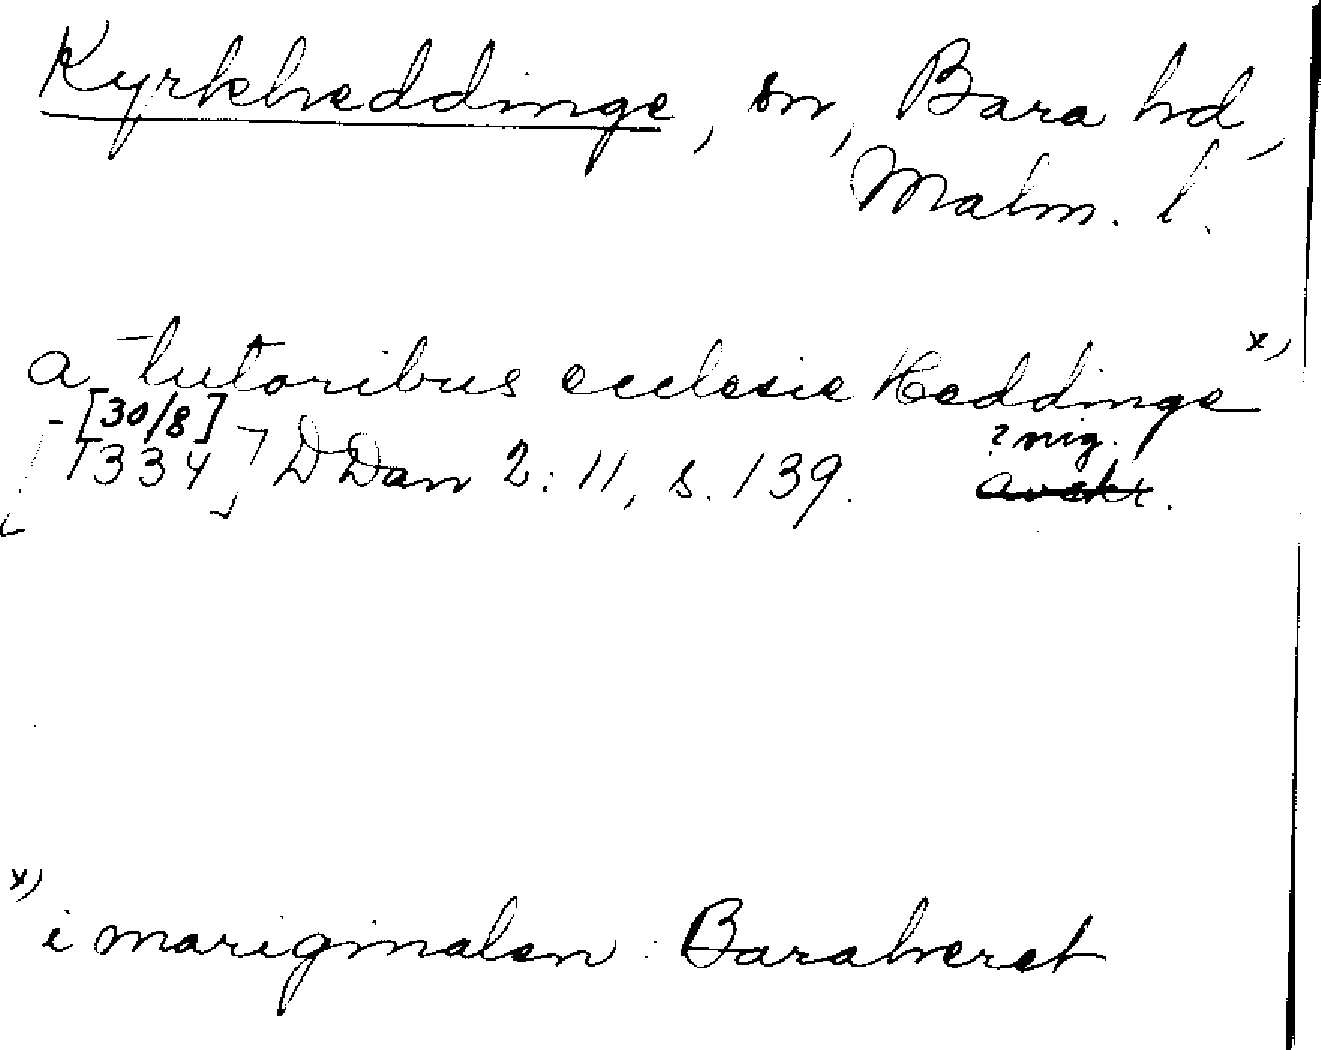 Kyrkheddinge, sn, Bara hd,
Malm. l.
a tutoribus ecclesie Heddinge x)
[30/8]
[1334] DDan 2:11, s. 139.
avskr.
x)
i mariginalen: Baraheret